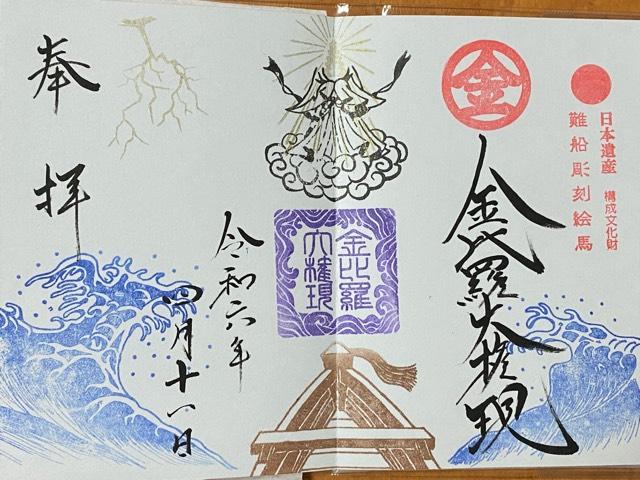 日本遺産 構成文化財
難船彫刻絵馬
金
金比羅大権現
金比羅
大権現
令和六年
四月十八日
奉拝